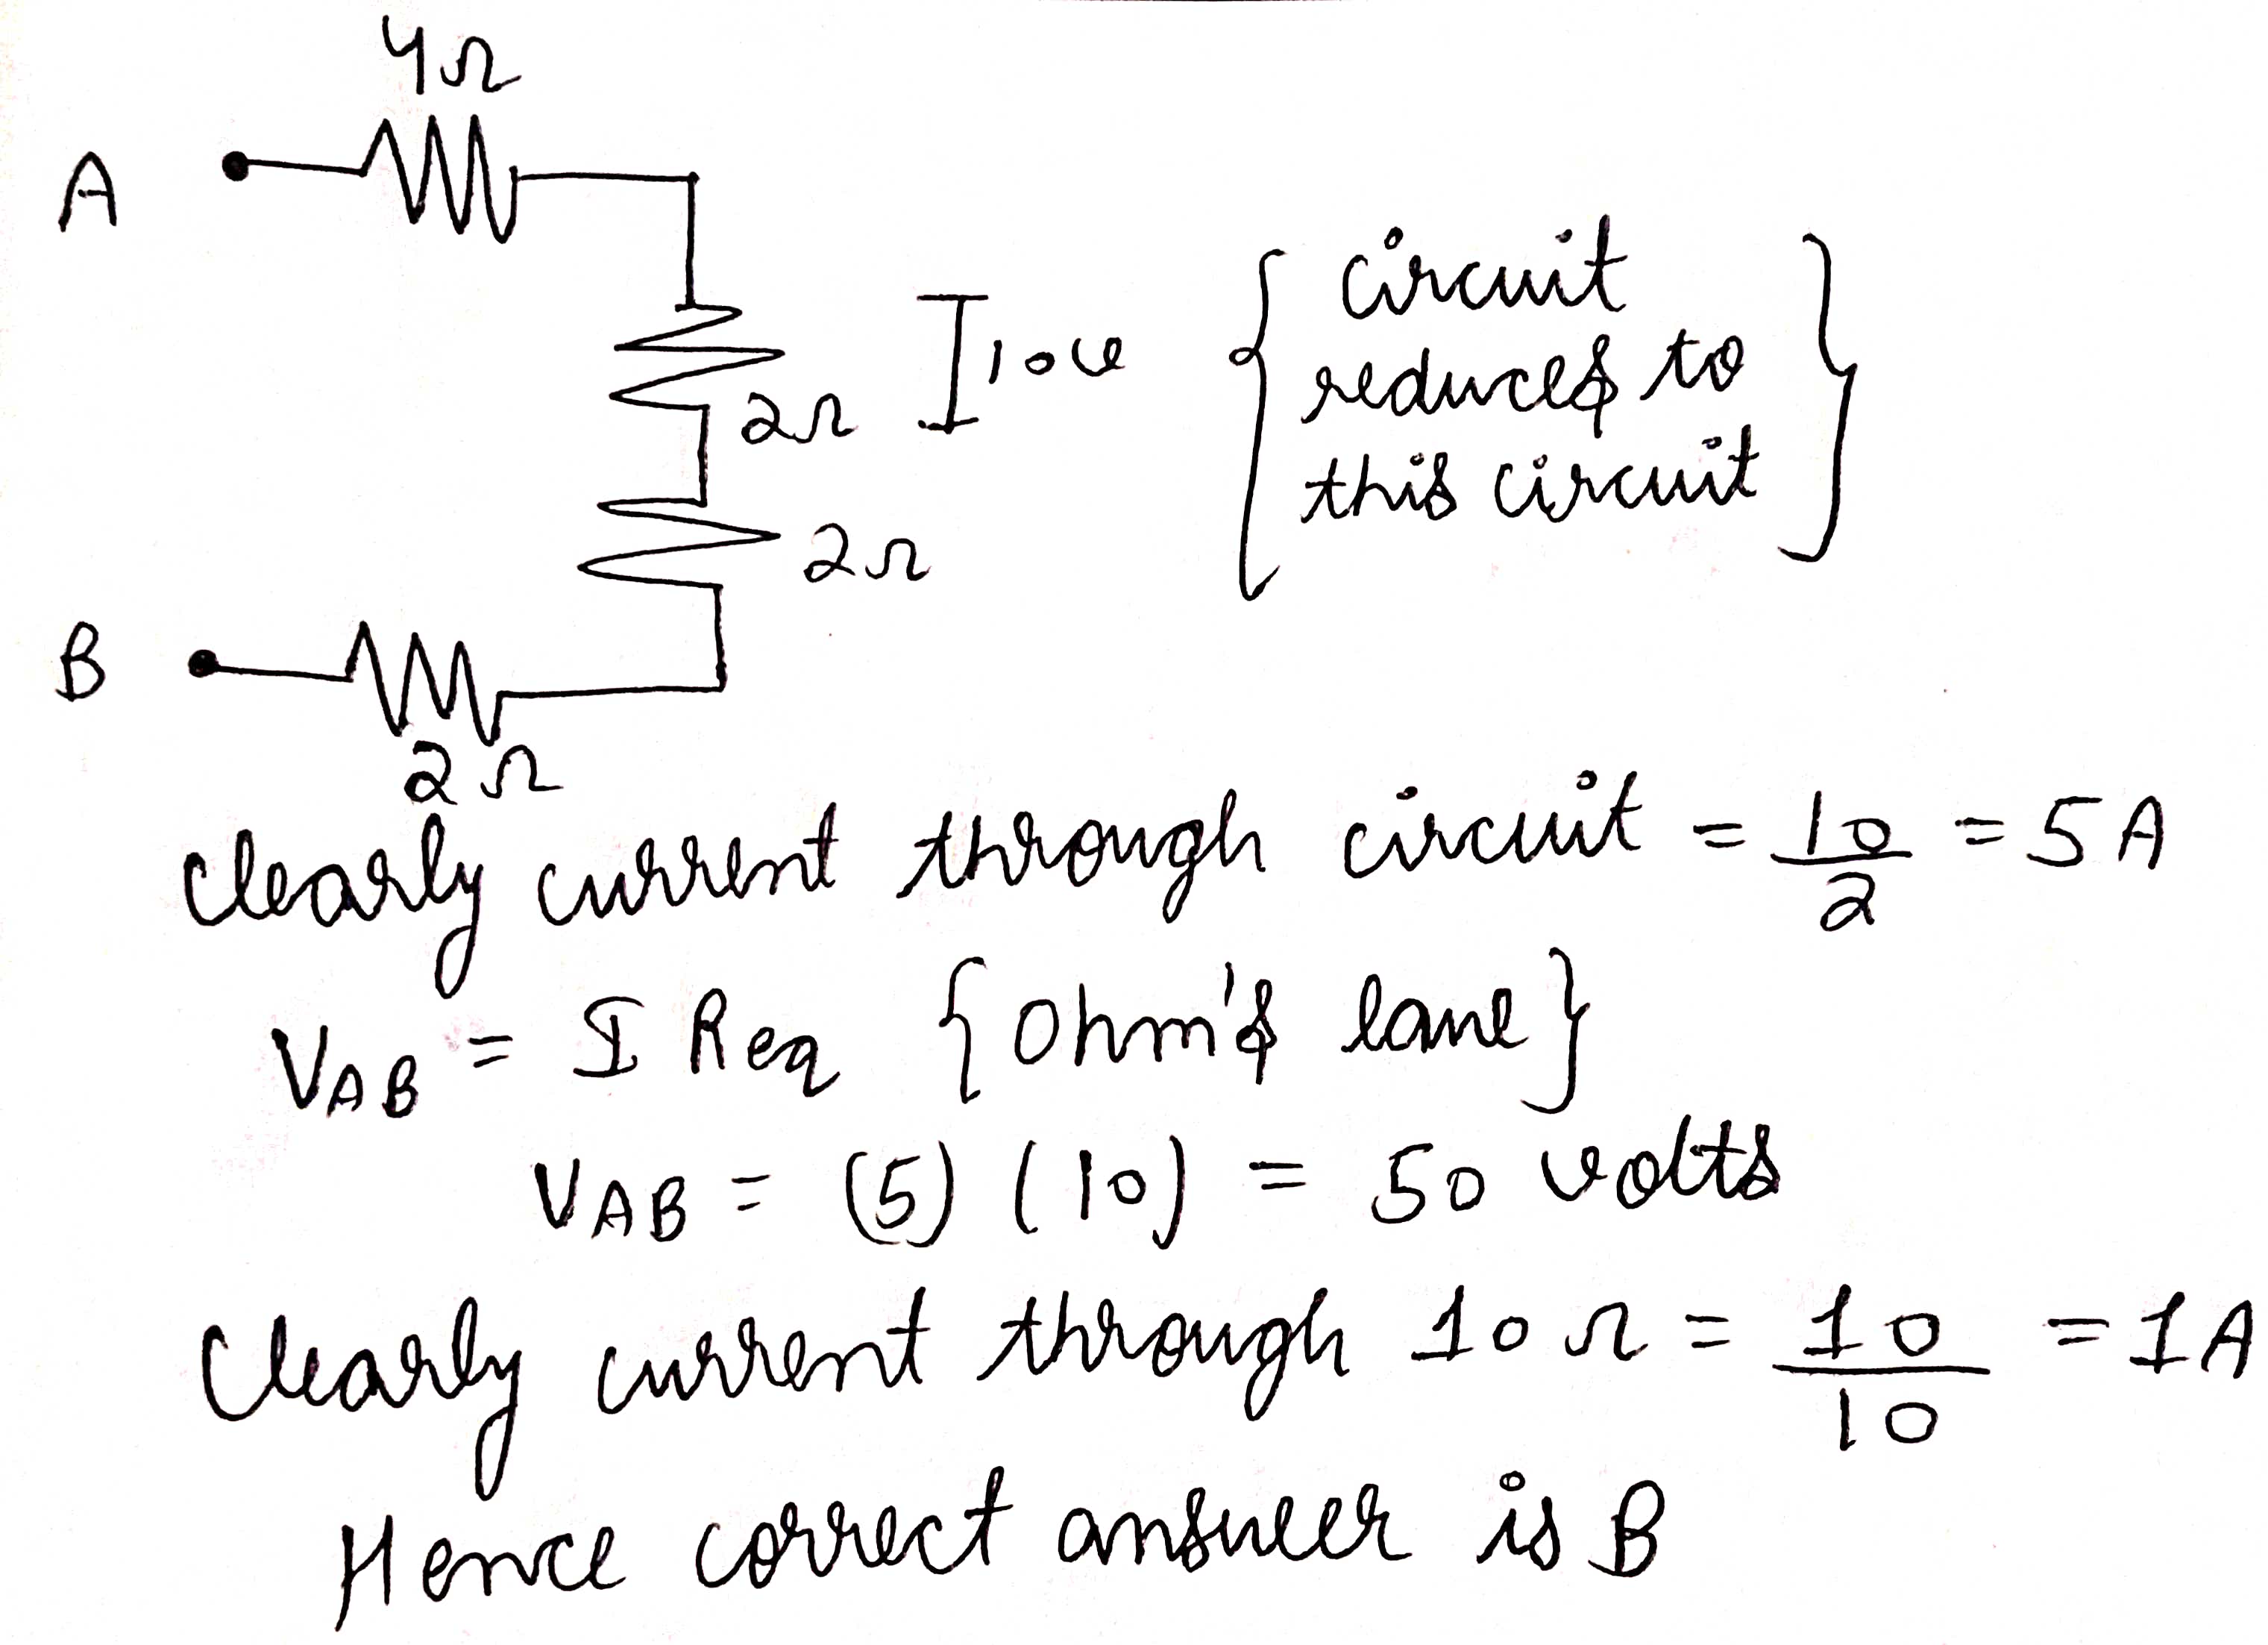 4Ω
A
I 10v
2Ω
2Ω
B
2Ω
{ circuit
reduces to
this circuit }
Clearly current through circuit = 10/2 = 5 A
VAB = I Req {Ohm's lawe}
VAB = (5) (10) = 50 volts
Clearly current through 10 Ω = 10/10 = 1 A
Hence correct answer is B